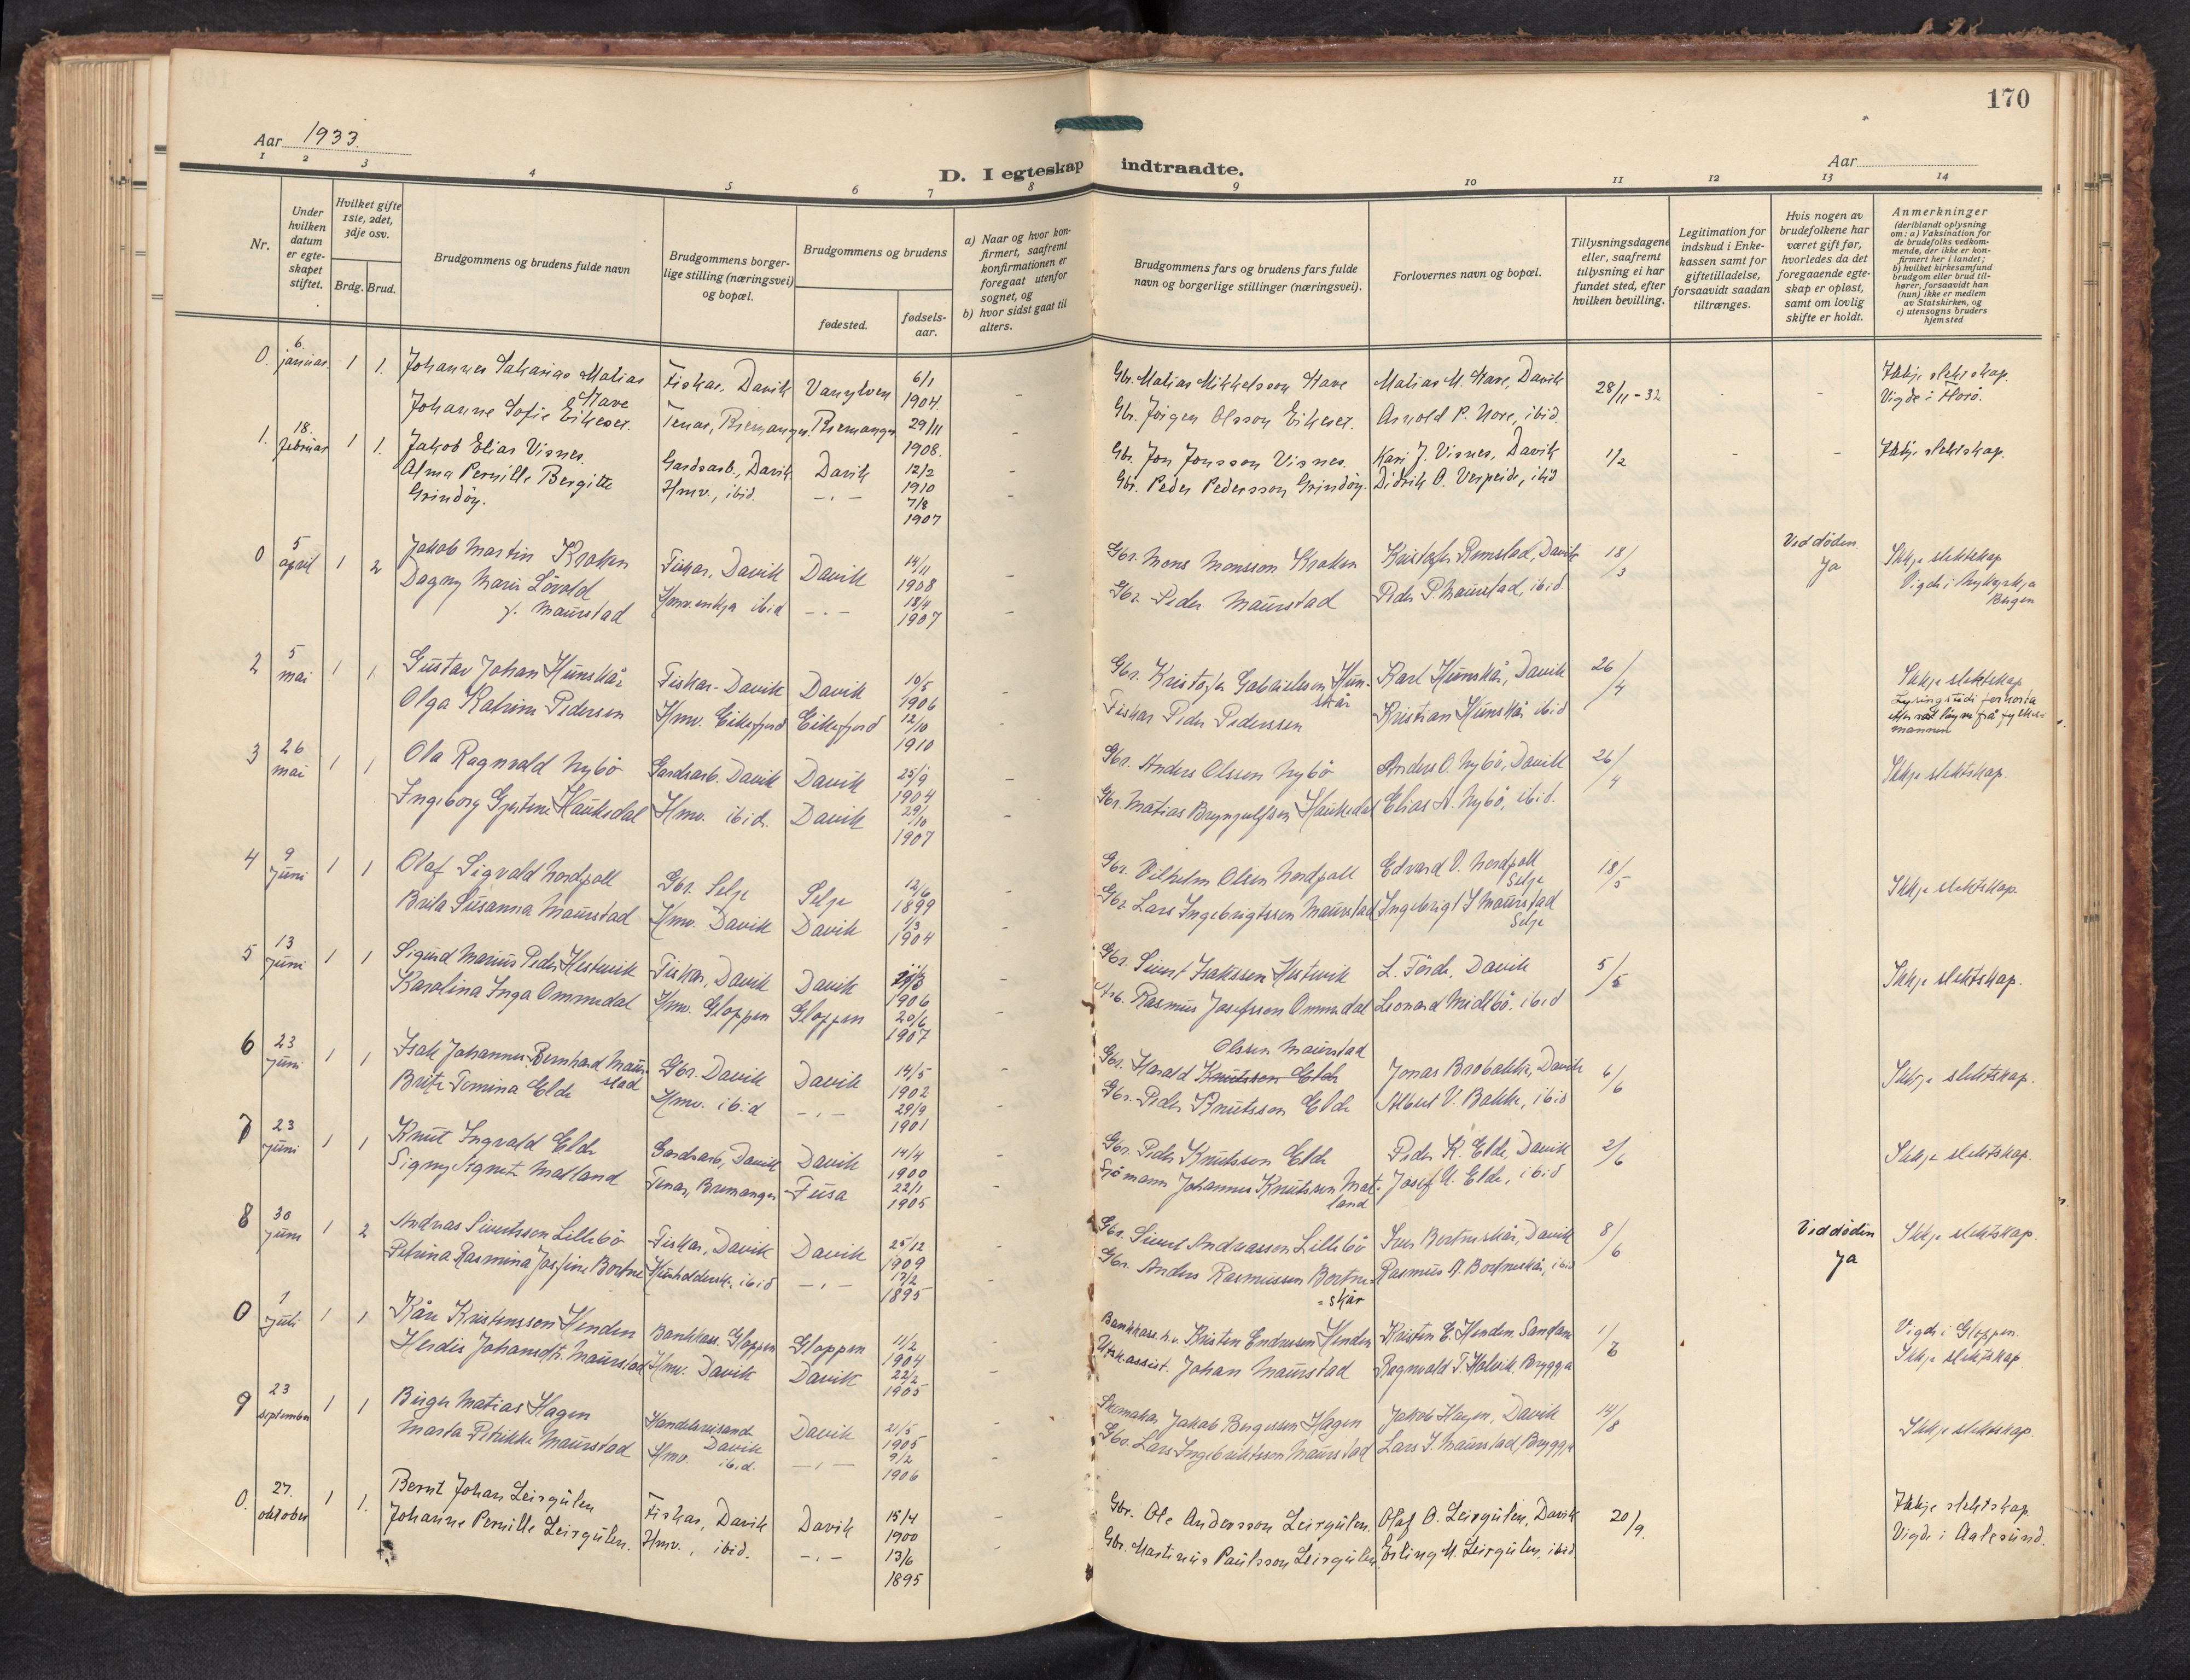 170
Aar 1933.
Aar
D. I egteskap indtraadte.
1 2 3 4 5 6 7 8 9 10 11 12 13 14
Nr.
Under hvilken datum er egteskapet stiftet.
Hvilket gifte 1ste, 2det, 3dje osv.
Brdg. Brud.
Brudgommens og brudens fulde navn
Brudgommens borgerlige stilling (næringsvei) og bopæl.
Brudgommens og brudens
fødested.
fødselsaar.
a) Naar og hvor konfirmert, saafremt konfirmationen er foregaat utenfor sognet, og
b) hvor sidst gaat til alters.
Brudgommens fars og brudens fars fulde navn og borgerlige stillinger (næringsvei).
Forlovernes navn og bopæl.
Tillysningsdagene eller, saafremt tillysning ei har fundet sted, efter hvilken bevilling.
Legitimation for indskud i Enkekassen samt for giftetilladelse, forsaavidt saadan tiltrænges.
Hvis nogen av brudefolkene har været gift før, hvorledes da det foregaaende egteskap er opløst, samt om lovlig skifte er holdt.
Anmerkninger (deriblandt oplysning om: a) Vaksination for de brudefolks vedkommende, der ikke er konfirmert her i landet; b) hvilket kirkesamfund brudgom eller brud tilhører, forsaavidt han (hun) ikke er medlem av Statskirken, og c) utensogns bruders hjemsted
0. 6. januar 1 1. Johannes Sakarias Matias Stave Fiskar, Davik Vanylven 6/1 1904. - Gbr. Matias Mikkelsson Stave Matias M. Stave, Davik 28/11-32 - - Ikkje slektskap.
Johanne Sofie Eikeset. Tenar, Bremanger. Bremanger 29/11 1908. - Gbr. Jørgen Olsson Eikeset. Arnold P. Nore, ibid. Vigde i Florö.
1. 18. februar 1 1. Jakob Elias Visnes. Gardsarb., Davik Davik 12/2 1910 - Gbr. Jon Jonsson Visnes. Kari J. Visnes, Davik 1/2 - - Ikkje slektskap.
Alma Pernille Bergitte Grindöy. Hmv., ibid. -,- 7/8 1907 - Gbr. Peder Pedersson Grindöy. Didrik O. Verpeide, ibid
0 5 april 1 2 Jakob Martin Kroken Fiskar, Davik Davik 14/11 1908 - Gbr. Mons Monsson Kroken Kristofer Rimstad, Davik 18/3 Ved döden Ikkje slektskap
Dagny Marie Lövold f. Maurstad Hmv. enkja ibid -,- 18/4 1907 - Gbr. Peder Maurstad Peder P. Maurstad, ibid. Ja Vigde i Nykyrkja Bergen
2 5 mai 1 1 Gustav Johan Hunskår Fiskar-Davik Davik 10/5 1906 - Gbr. Kristofer Gabrielsson Hunskår Karl Hunskår, Davik 26/4 Ikkje slektskap
Olga Katrine Pedersen Hmv. Eikefjord Eikefjord 12/10 1910 Fiskar Peder Pederssen Kristian Hunskår ibid Lysingstidi forkorta etter löyve frå fylkesmannen
3 26 mai 1 1 Ola Ragnvald Nybö Gardsarb. Davik Davik 25/9 1904 - Gbr. Anders Olsson Nybö Anders O. Nybö, Davik 26/4 Ikkje slektskap.
Ingeborg Gjertine Haukedal Hmv. ibid. Davik 29/10 1907 - Gbr. Matias Bryngulfsson Haukedal Elias A. Nybö, ibid.
4 9 juni 1 1 Olaf Sigvald Nordpoll Gbr. Selje Selje 12/6 1899 - Gbr. Vilhelm Olsen Nordpoll Edvard V. Nordpoll Selje 18/5 Ikkje slektskap.
Brita Susanna Maurstad Hmv. Davik Davik 1/3 1904 - Gbr Lars Ingebrigtssen Maurstad Ingebrigt I Maurstad Selje
5 13 juni 1 1 Sigurd Marius Peder Hestevik Fiskar, Davik Davik 1906 - Gbr. Sivert Isakssen Hestevik L. Förde, Davik 5/5 Ikkje slektskap.
Karolina Inga Ommedal Hmv. Gloppen Gloppen 20/6 1907 - Arb. Rasmus Josefsson Ommedal Leonard Midtbö, ibid
6 23 juni 1 1 Isak Johannes Bernhard Maurstad Gbr. Davik Davik 14/5 1902 - Gbr. Harald Knutsson Elde Olssen Maurstad Jonas Brobakke, Davik 6/6 Ikkje slektskap.
Brite Tomina Elde Hmv. ibid -,- 29/9 1901 - Gbr. Peder Knutsson Elde Albert V. Bakke, ibid
7 23 juni 1 1 Knut Ingvald Elde Gardsarb, Davik Davik 14/4 1900 - Gbr. Peder Knutsson Elde Peder K. Elde, Davik 2/6 Ikkje slektskap.
Signy Agnet Matland Tenar, Bremanger Fusa 22/1 1905 - Sjömann Johannes Knutssen Matland Josef A. Elde, ibid
8 30 juni 1 2 Andreas Sivertsson Lillebö Fiskar, Davik Davik 25/12 1909 Gbr. Sivert Andreassen Lillebö Iver Bortneskår, Davik 8/6 Ved döden Ikkje slektskap.
Petrina Rasmina Josefine Bortne Hushaldersk. ibid -,- 17/2 1895 - Gbr. Anders Rasmussen Bortne=skår Rasmus A. Bortneskår, ibid Ja
0 1 juli 1 1 Kåre Kristenssen Henden Bankkass. Gloppen Gloppen 11/2 1904 Bankkass. Kristen Endresen Henden Kristen E. Henden, Sandane 1/6 Vigde i Gloppen
Herdis Johansdtr. Maurstad Hmv. Davik Davik 22/2 1905 - Johan Maurstad Ragnvald T. Holvik Bryggja Ikkje slektskap
9 23 september 1 1 Birger Matias Hagen Handelsreisande Davik Davik 21/5 1905 - Skomakar Jakob Bergersen Hagen Jakob Hagen, Davik 14/8 Ikkje slektskap.
Marta Petrikke Maurstad Hmv. ibid. -,- 9/2 1906 - Gbr. Lars Ingebriktsson Maurstad Lars I. Maurstad, Bryggja
0. 27. oktober 1 1. Bernt Johan Leirgulen Fiskar, Davik Davik 15/4 1900 - Gbr. Ole Andersson Leirgulen. Olaf O. Leirgulen, Davik 20/9. Ikkje slektskap.
Johanne Pernille Leirgulen. Hmv., ibid. -,- 13/6 1895 - Gbr. Martinus Paulsson Leirgulen Erling M. Leirgulen, ibid. Vigde i Aalesund.